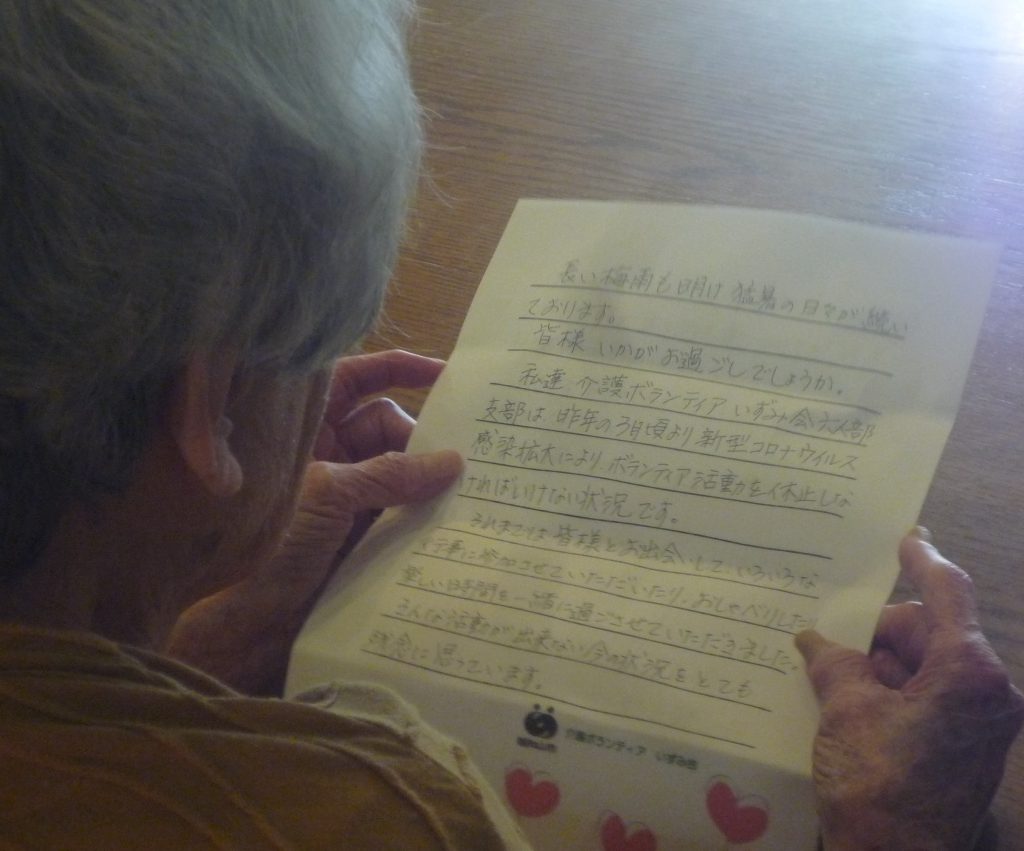 長い梅雨も明け猛暑の日々が続い
ております。
皆様いかがお過ごしでしょうか。
私達介護ボランティアいずみ会大人部
支部は昨年の3月頃より新型コロナウイルス
感染拡大によりボランティア活動を休止しな
ければいけない状況です。
それまでは皆様とお出会いして、いろいろな
行事に参加させていただいたり、おしゃべりしたり
楽しい時間を一緒に過ごさせていただきました。
そんな活動が出来ない今の状況をとても
残念に思っています。
介護ボランティア いずみ会